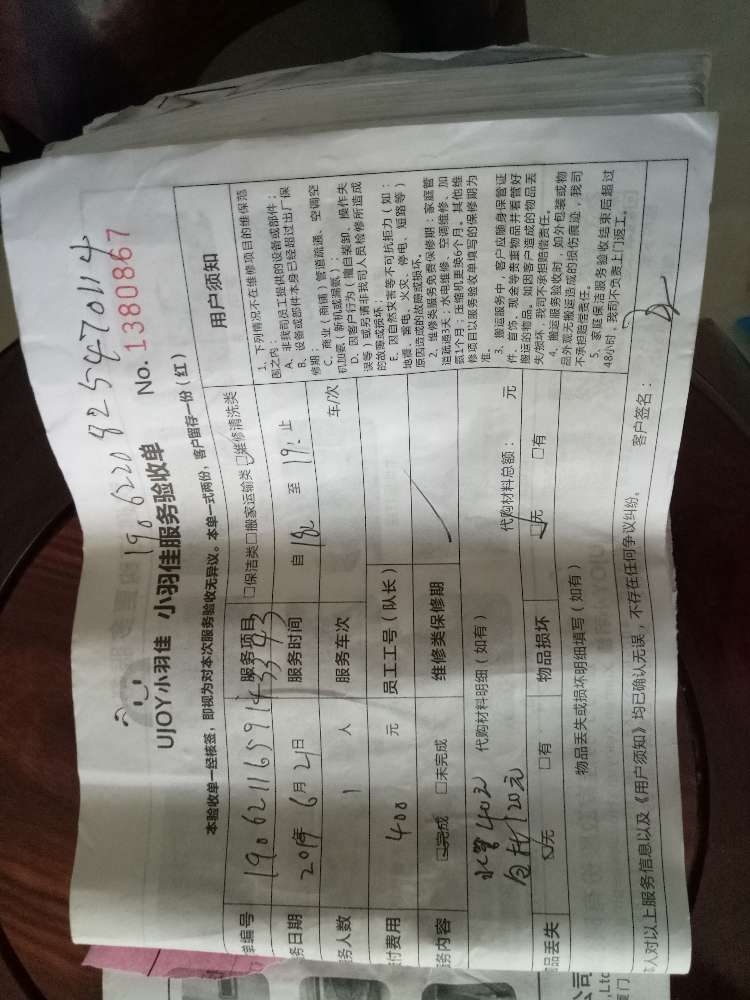 190622082547011 4
UJOY小羽佳 小羽佳服务验收单
No. 1380867
本验收单一经核签，即视为对本次服务验收无异议。本单一式两份，客户留存一份（红）
单编号 服务项目 □保洁类□搬家运输类 □维修清洗类
务日期 2019年 6月 21日 服务时间 自 18: 至 19: 止
务人数 1 人 服务车次 车/次
付费用 400 元 员工工号（队长）
务内容 □完成 □未完成 维修类保修期
代购材料明细（如有） 代购材料总额： 元
水管
120元
品丢失 □无 □有 物品损坏 □无 □有
物品丢失或损坏明细填写（如有）
人对以上服务信息以及《用户须知》均已确认无误，不存在任何争议纠纷。 客户签名：
用户须知
1、下列情况不在维修项目的维保范
围之内：
A、非我司员工提供的设备或部件；
B、设备或部件本身已经超过出厂保
修期；
C、商业（商铺）管道疏通、空调空
机加氨（新机或漏氨）；
D、因客户行为（擅自装卸、操作失
误等）或另请非我司人员检修所造成
的故障或损坏；
E、因自然灾害等不可抗拒力（如：
地震、雷电、火灾、停电、短路等）
原因造成的故障或损坏。
2、维修类服务免费保修期：家庭管
道疏通3天；水电维修、空调维修、加
氨1个月；压缩机更换6个月。其他维
修项目以服务验收单填写的保修期为
准。
3、搬运服务中，客户应随身保管证
件、首饰、现金等贵重物品并看管好
搬运的物品。如因客户造成的物品丢
失/损坏，我司不承担赔偿责任。
4、搬运服务验收时，如外包装或物
品外观无搬运造成的损伤痕迹，我司
不承担赔偿责任。
5、家庭保洁服务验收结束后超过
48小时，我司不负责上门返工。
公司